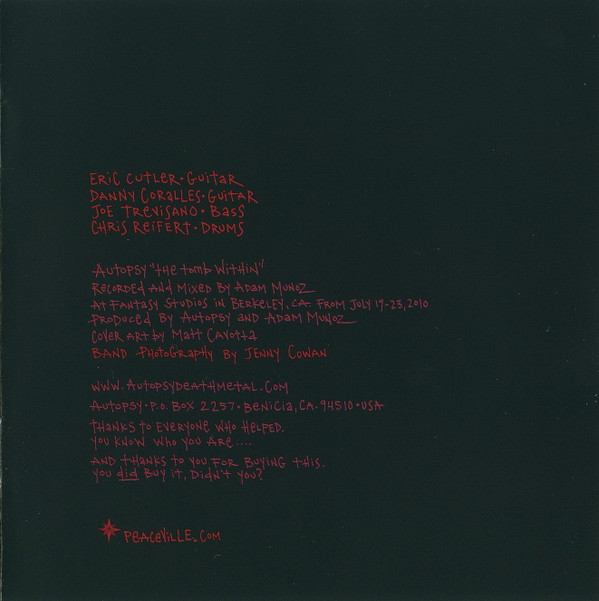 Eric Cutler • Guitar
Danny Coralles • Guitar
Joe Trevisano • Bass
Chris Reifert • Drums
Autopsy "The Tomb Within"
Recorded and Mixed by Adam Munoz
at Fantasy Studios in Berkeley, CA. from July 19-23, 2010
Produced by Autopsy and Adam Munoz
Cover art by Matt Cavotta
Band Photography by Jenny Cowan
www.autopsydeathmetal.com
Autopsy • P.O. Box 2257 • Benicia, CA • 94510 • USA
Thanks to everyone who helped.
You know who you are....
And thanks to you for buying this.
You did buy it, didn't you?
Peaceville.com